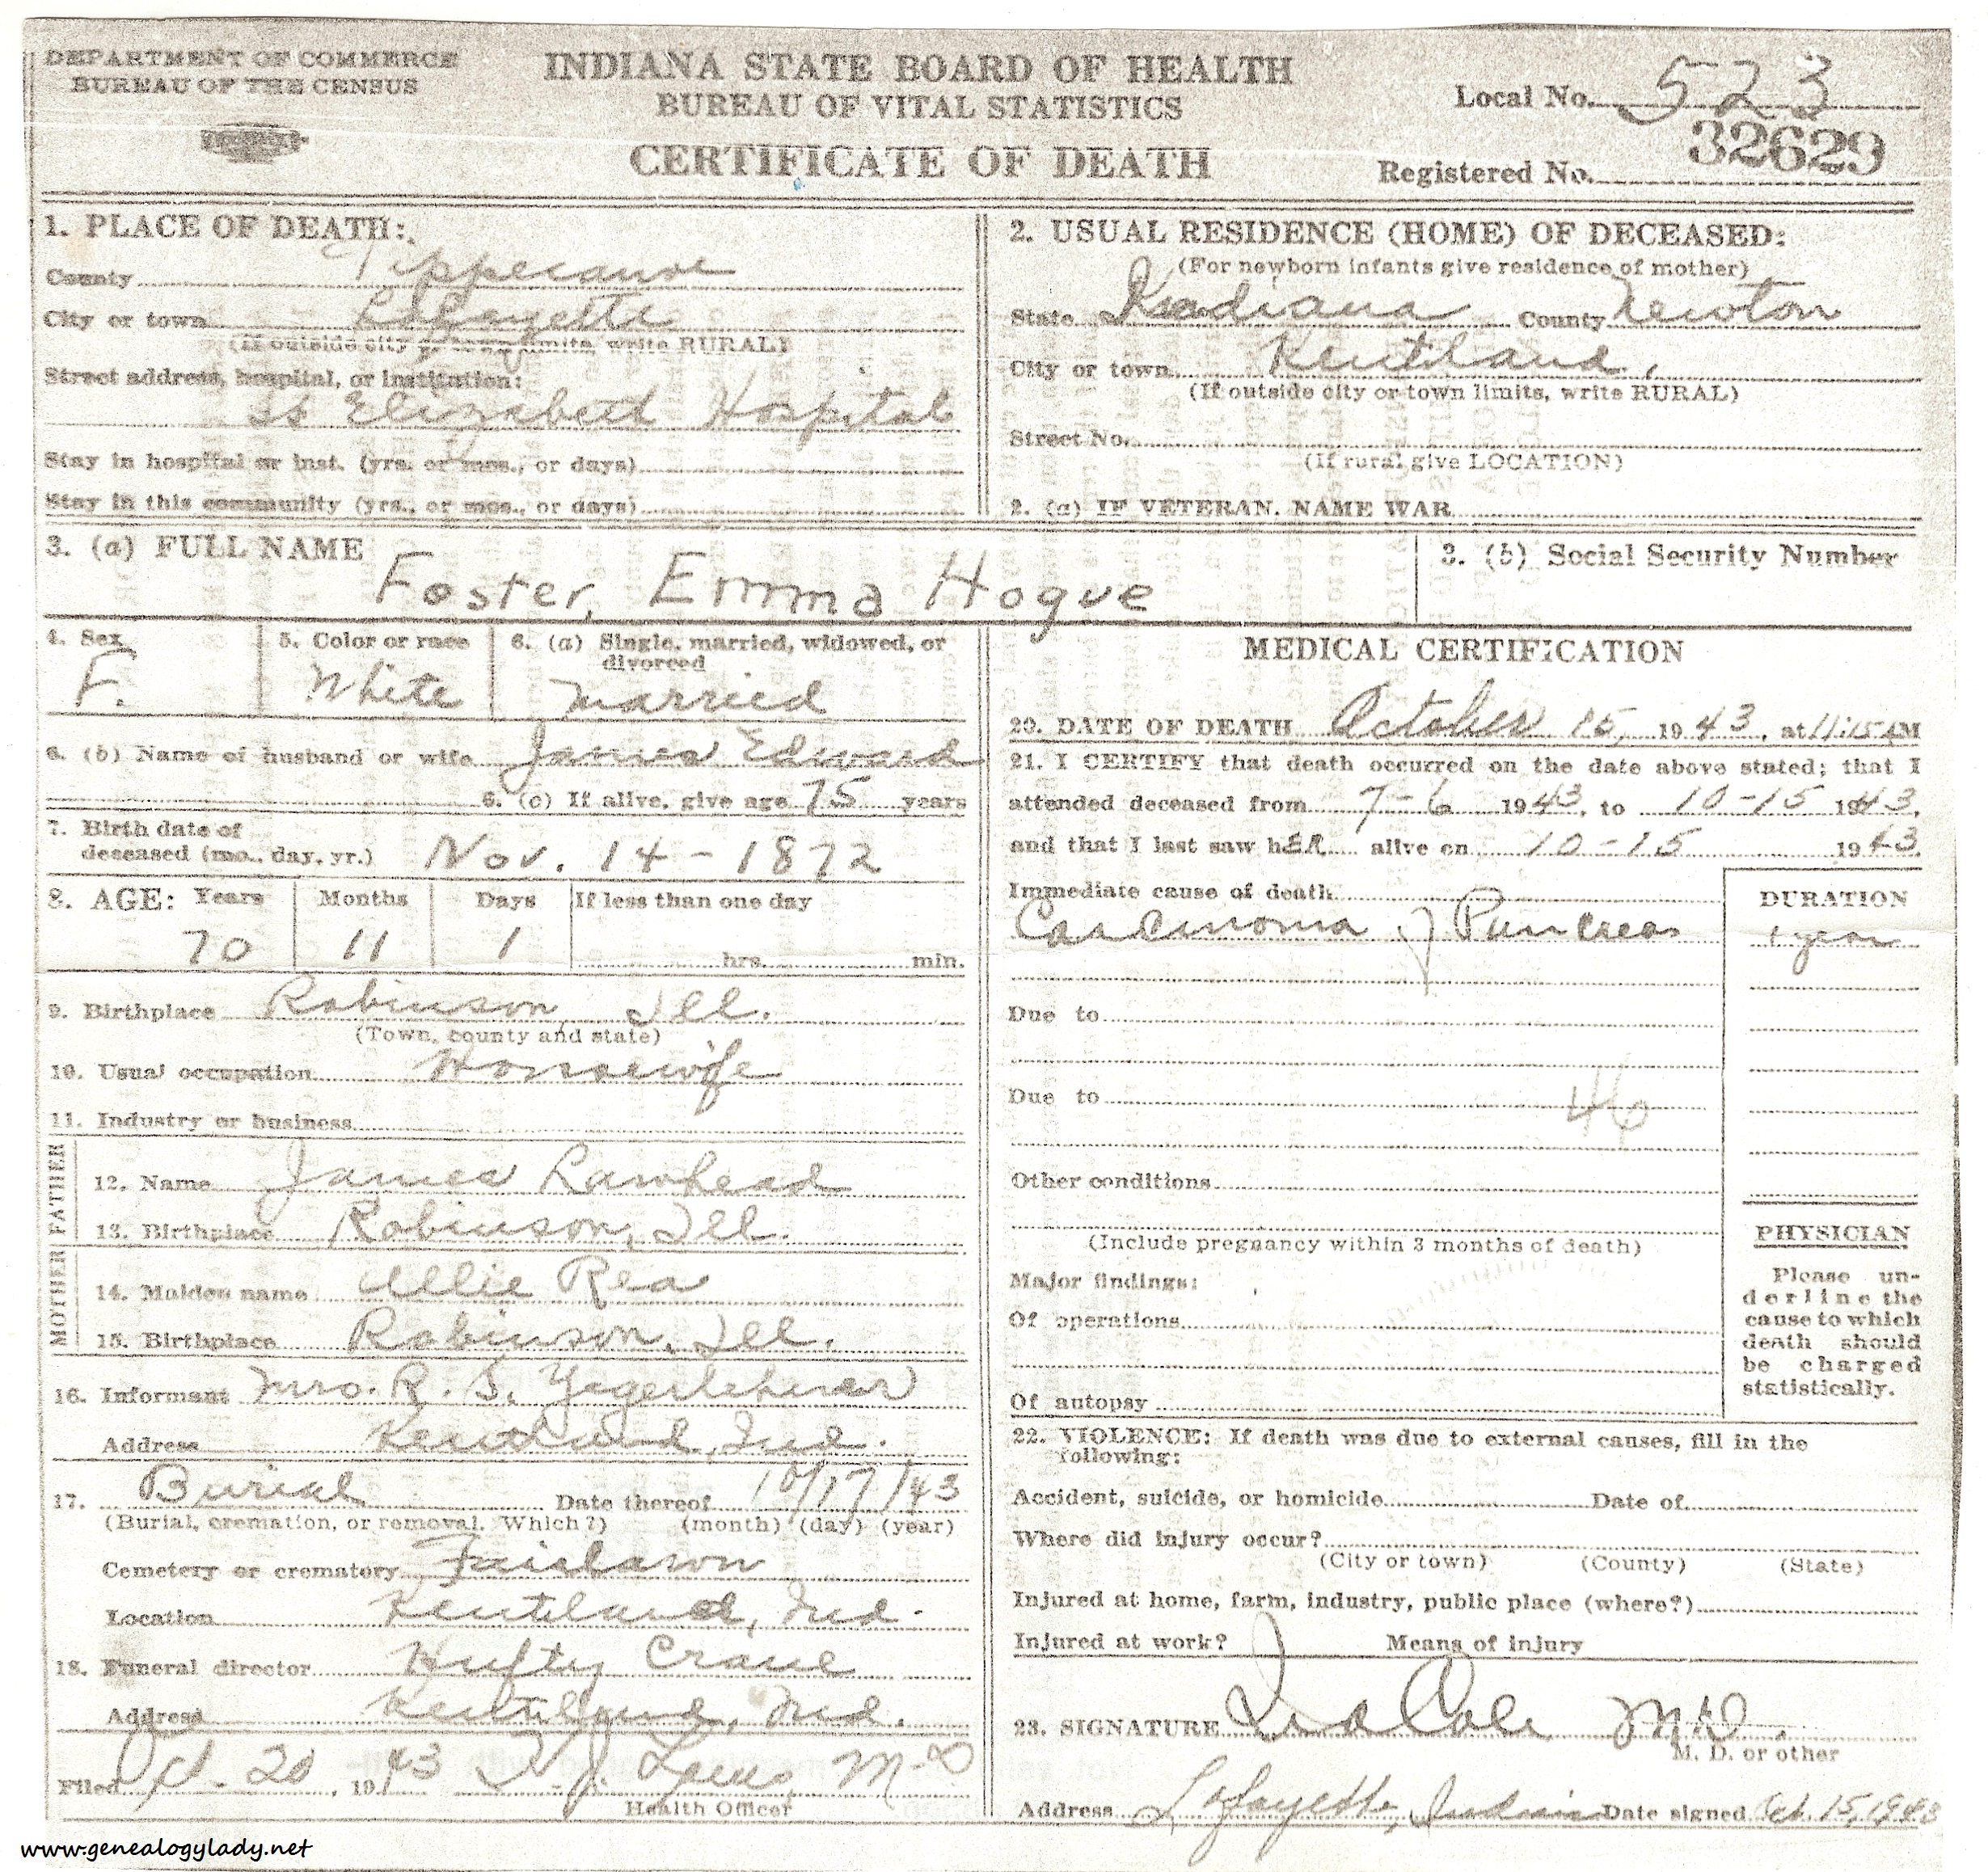 DEPARTMENT OF COMMERCE
BUREAU OF THE CENSUS
INDIANA STATE BOARD OF HEALTH
BUREAU OF VITAL STATISTICS
CERTIFICATE OF DEATH
Local No. 523
Registered No. 32629
1. PLACE OF DEATH:
County Tippecanoe
City or town Lafayette
(If outside city or town limits, write RURAL)
Street address, hospital, or institution:
St Elizabeth Hospital
Stay in hospital or inst. (yrs. or mos., or days)
Stay in this community (yrs., or mos., or days)
2. USUAL RESIDENCE (HOME) OF DECEASED:
(For newborn infants give residence of mother)
State Indiana County Newton
City or town Kentland,
(If outside city or town limits, write RURAL)
Street No.
(If rural give LOCATION)
2. (a) IF VETERAN, NAME WAR
3. (a) FULL NAME Foster, Emma Hogue
3. (b) Social Security Number
4. Sex F.
5. Color or race White
6. (a) Single, married, widowed, or divorced married
6. (b) Name of husband or wife James Edward
6. (c) If alive, give age 75 years
7. Birth date of
deceased (mo., day, yr.) Nov. 14 - 1872
8. AGE: Years Months Days If less than one day
70 11 1 hrs. min.
9. Birthplace Robinson, Ill.
(Town, county and state)
10. Usual occupation Housewife
11. Industry or business
FATHER
12. Name James Lawhead
13. Birthplace Robinson, Ill.
MOTHER
14. Maiden name Allie Rea
15. Birthplace Robinson, Ill.
16. Informant Mrs. R. S. Yegerlehner
Address Kentland, Ind.
17. Burial Date thereof 10/17/43
(Burial, cremation, or removal. Which?) (month) (day) (year)
Cemetery or crematory Fairlawn
Location Kentland, Ind.
18. Funeral director Hufty Crane
Address Kentland, Ind.
Filed Oct. 20, 1943 M-D
Health Officer
MEDICAL CERTIFICATION
20. DATE OF DEATH October 15, 1943, at 11:15 AM
21. I CERTIFY that death occurred on the date above stated; that I
attended deceased from 7-6 1943, to 10-15 1943,
and that I last saw hER alive on 10-15 1943.
Immediate cause of death
Carcinoma of Pancreas
DURATION
1 year
Due to
Due to
46
Other conditions
(Include pregnancy within 3 months of death)
Major findings:
Of operations
Of autopsy
PHYSICIAN
Please un-
derline the
cause to which
death should
be charged
statistically.
22. VIOLENCE: If death was due to external causes, fill in the
following:
Accident, suicide, or homicide Date of
Where did injury occur?
(City or town) (County) (State)
Injured at home, farm, industry, public place (where?)
Injured at work? Means of injury
23. SIGNATURE Ira Cole M.D.
M. D. or other
Address Lafayette, Indiana Date signed Oct. 15, 1943
www.genealogylady.net